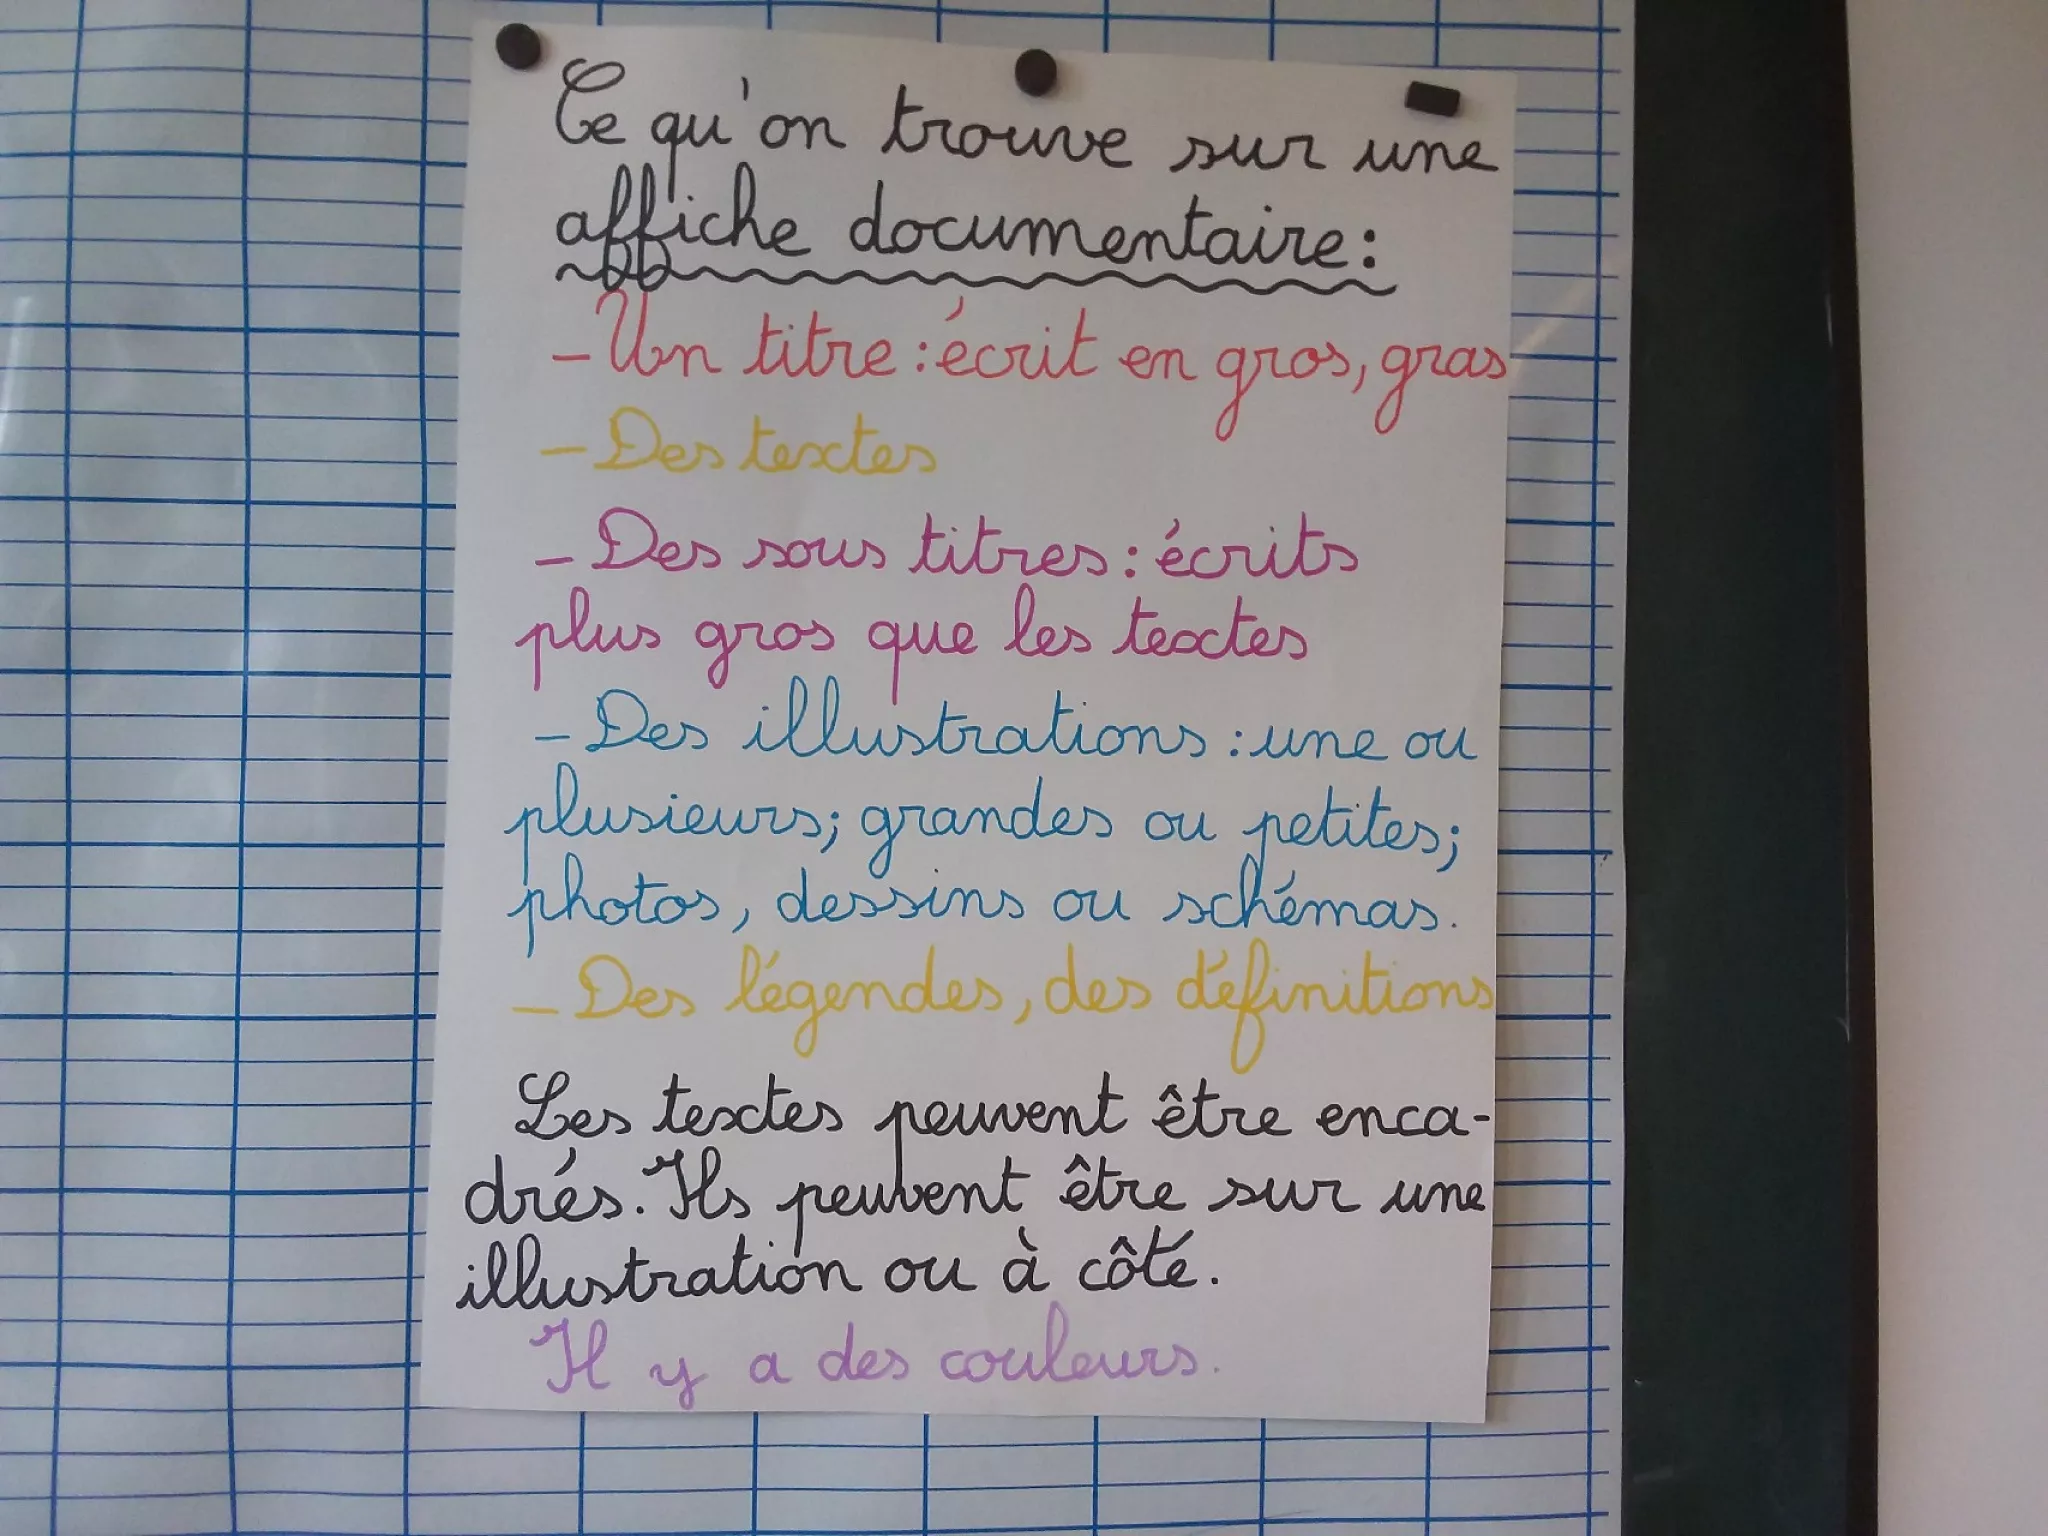 Ce qu'on trouve sur une
affiche documentaire :
- Un titre : écrit en gros, gras
- Des textes
- Des sous titres : écrits
plus gros que les textes
- Des illustrations : une ou
plusieurs; grandes ou petites;
photos, dessins ou schémas.
- Des légendes, des définitions
Les textes peuvent être enca-
drés. Ils peuvent être sur une
illustration ou à côté.
Il y a des couleurs.